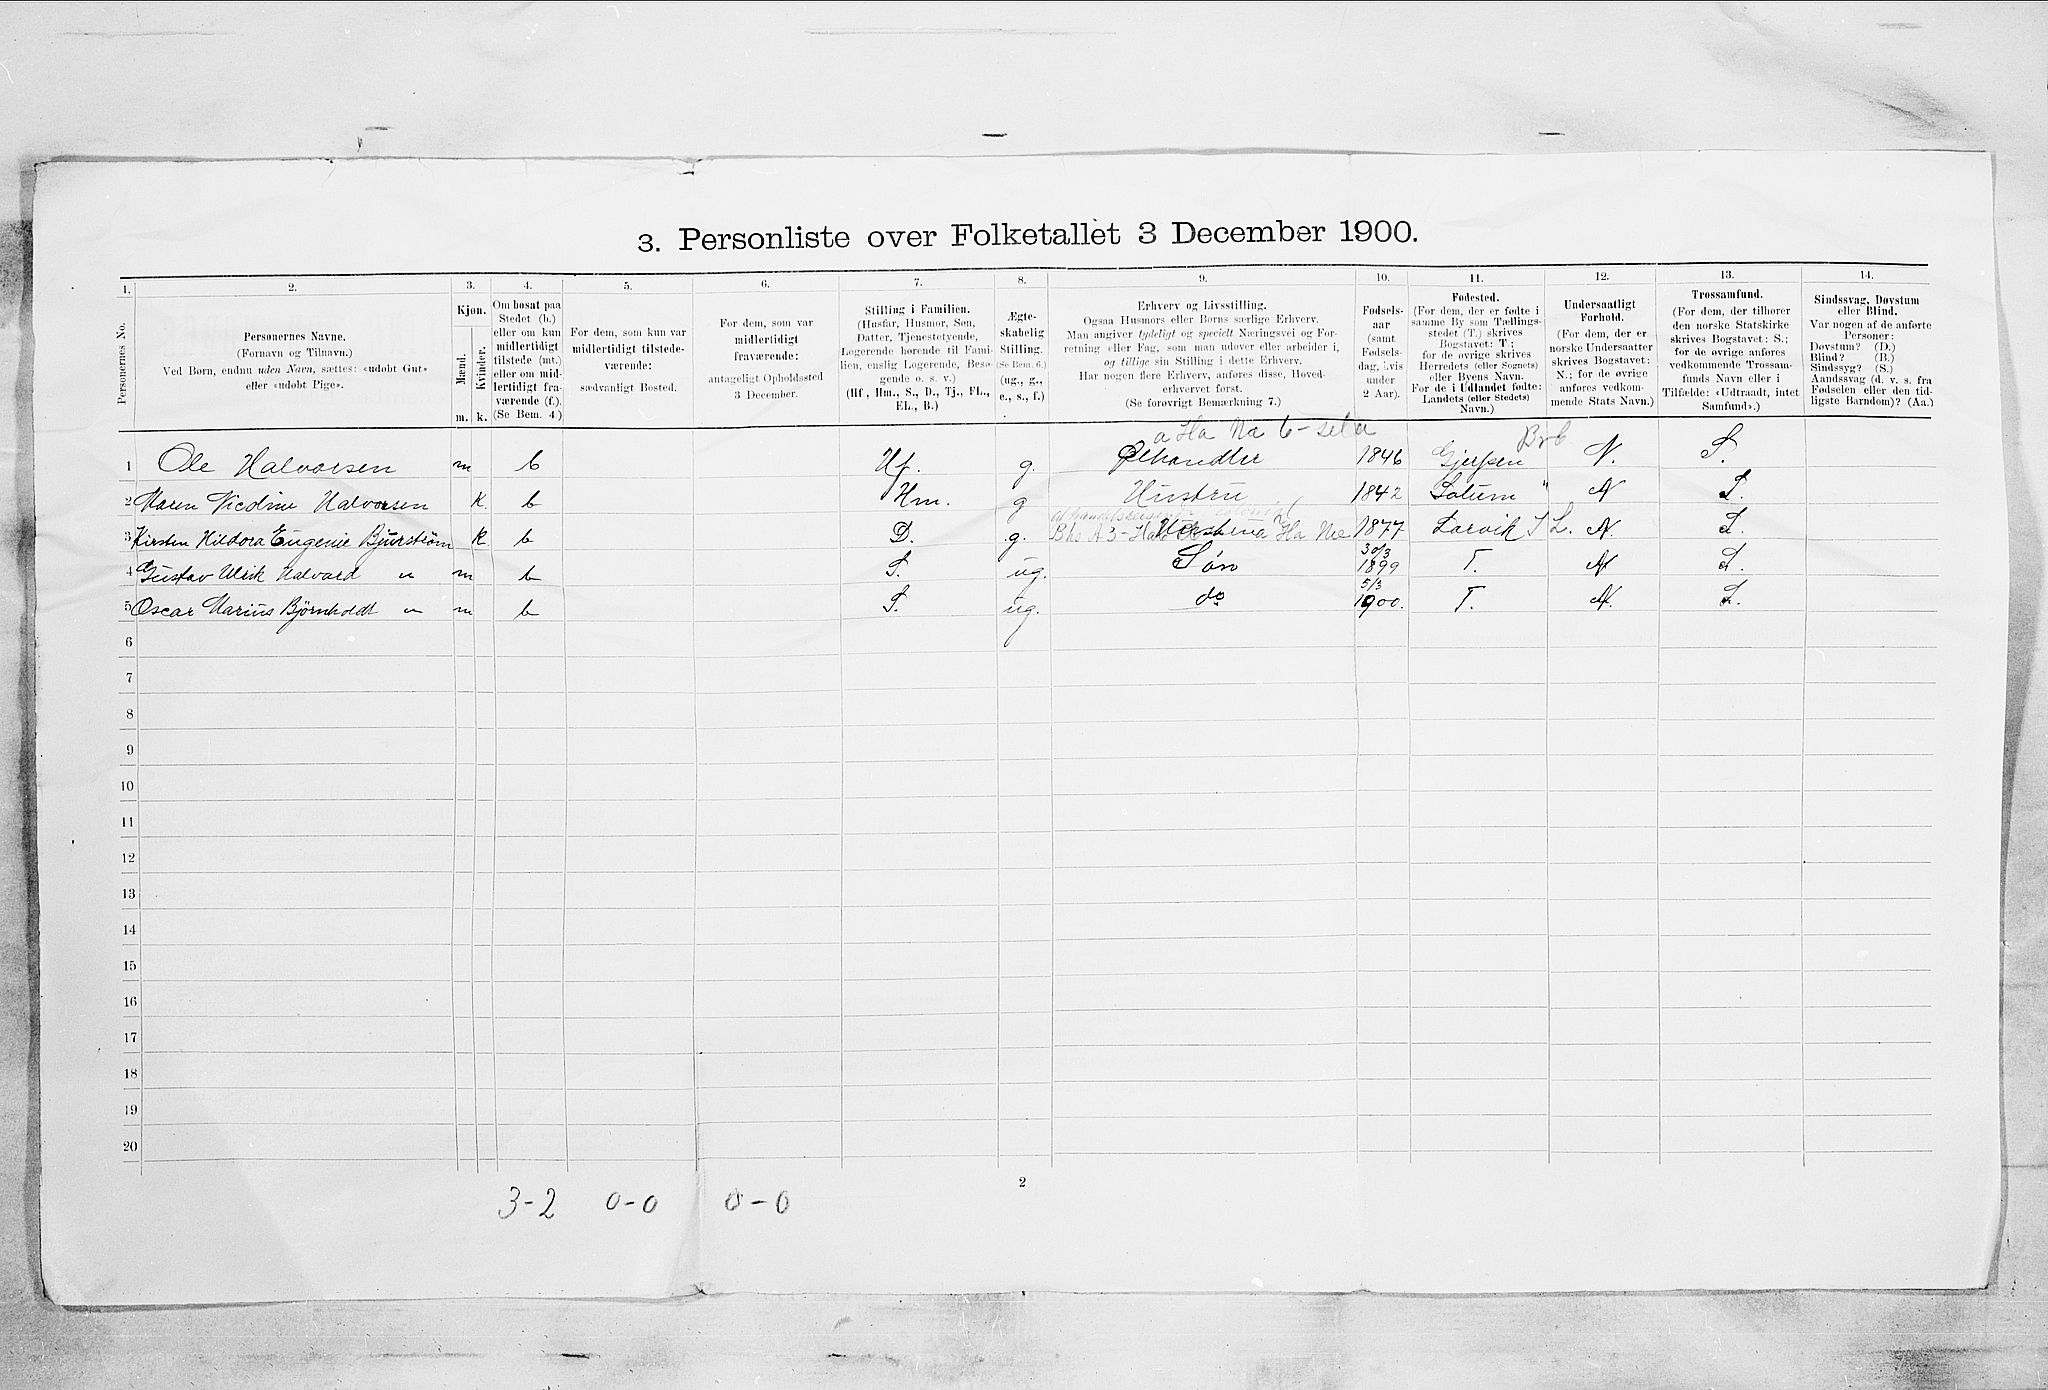 3. Personliste over Folketallet 3 December 1900.
1. 2. 3. 4. 5. 6. 7. 8. 9. 10. 11. 12. 13. 14.
Personernes No.
Personernes Navne.
(Fornavn og Tilnavn.)
Ved Børn, endnu uden Navn, sættes: «udøbt Gut»
eller «udøbt Pige».
Kjøn.
Mænd.
Kvinder.
m. k.
Om bosat paa
Stedet (b.)
eller om kun
midlertidigt
tilstede (mt.)
eller om mid-
lertidigt fra-
værende (f.).
(Se Bem. 4.)
For dem, som kun var
midlertidigt tilstede-
værende:
sædvanligt Bosted.
For dem, som var
midlertidigt
fraværende:
antageligt Opholdssted
3 December.
Stilling i Familien.
(Husfar, Husmor, Søn,
Datter, Tjenestetyende,
Logerende hørende til Fami-
lien, enslig Logerende, Besø-
gende o. s. v.)
(Hf., Hm., S., D., Tj., FL.,
EL., B.)
Ægte-
skabelig
Stilling.
(Se Bem. 6.)
(ug., g.,
e., s., f.)
Erhverv og Livsstilling.
Ogsaa Husmors eller Børns særlige Erhverv.
Man angiver tydeligt og specielt Næringsvei og For-
retning eller Fag, som man udøver eller arbeider i,
og tillige sin Stilling i dette Erhverv.
Har nogen flere Erhverv, anføres disse, Hoved-
erhvervet først.
(Se forøvrigt Bemærkning 7.)
Fødsels-
aar
(samt
Fødsels-
dag, hvis
under
2 Aar).
Fødested.
(For dem, der er fødte i
samme By som Tællings-
stedet (T.) skrives
Bogstavet: T.;
for de øvrige skrives
Herredets (eller Sognets)
eller Byens Navn.
For de i Udlandet fødte:
Landets (eller Stedets)
Navn.)
Undersaatligt
Forhold.
(For dem, der er
norske Undersaatter
skrives Bogstavet:
N.; for de øvrige
anføres vedkom-
mende Stats Navn.)
Trossamfund.
(For dem, der tilhører
den norske Statskirke
skrives Bogstavet: S.;
for de øvrige anføres
vedkommende Trossam-
funds Navn eller i
Tilfælde: «Udtraadt, intet
Samfund».)
Sindssvag, Døvstum
eller Blind.
Var nogen af de anførte
Personer:
Døvstum? (D.)
Blind? (B.)
Sindssyg? (S.)
Aandssvag (d. v. s. fra
Fødselen eller den tid-
ligste Barndom)? (Aa.)
1 Ole Halvorsen m b Hf. g. Ølhandler 1846 Gjerpen N. S.
2 Maren Nicoline Halvorsen K. b Hm. g Hustru 1842 Solum " N S.
3 Kirsten Hildora Eugenie Bjurstrøm K b D. g. 1877 Larvik N. S.
4 Gustav Ulrik Halvard " m b S. ug. Søn 30/3 1899 T. N S.
5 Oscar Marius Björnholdt " m b S. ug. do 5/3 1900. T. N. S.
6
7
8
9
10
11
12
13
14
15
16
17
18
19
20
2
3-2 0-0 0-0